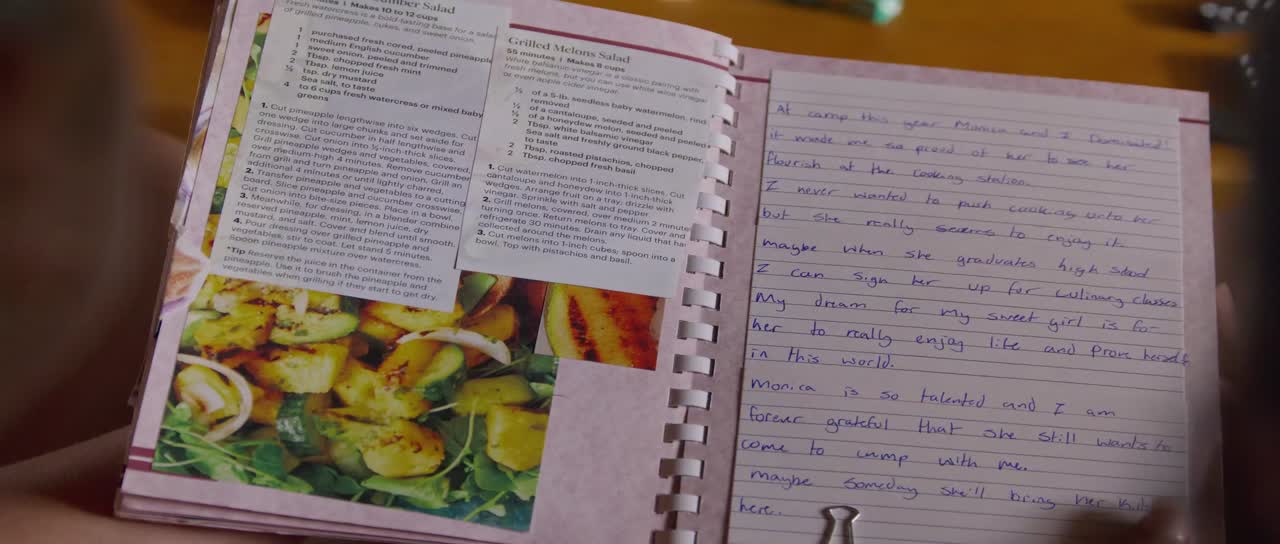 umber Salad
| Makes 10 to 12 cups
Fresh watercress is a bold-tasting base for a salad
of grilled pineapple, cukes, and sweet onion.
1 purchased fresh cored, peeled pineapple
1 medium English cucumber
1 sweet onion, peeled and trimmed
2 Tbsp. chopped fresh mint
2 Tbsp. lemon juice
½ tsp. dry mustard
Sea salt, to taste
4 to 6 cups fresh watercress or mixed baby
greens
1. Cut pineapple lengthwise into six wedges. Cut
one wedge into large chunks and set aside for
dressing. Cut cucumber in half lengthwise and
crosswise. Cut onion into ½-inch-thick slices.
Grill pineapple wedges and vegetables, covered,
over medium-high 4 minutes. Remove cucumber
from grill and turn pineapple and onion. Grill an
additional 4 minutes or until lightly charred.
2. Transfer pineapple and vegetables to a cutting
board. Slice pineapple and cucumber crosswise.
Cut onion into bite-size pieces. Place in a bowl.
3. Meanwhile, for dressing, in a blender combine
reserved pineapple, mint, lemon juice, dry
mustard, and salt. Cover and blend until smooth.
4. Pour dressing over grilled pineapple and
vegetables; stir to coat. Let stand 5 minutes.
Spoon pineapple mixture over watercress.
*Tip Reserve the juice in the container from the
pineapple. Use it to brush the pineapple and
vegetables when grilling if they start to get dry.
Grilled Melons Salad
55 minutes | Makes 8 cups
White balsamic vinegar is a classic pairing with
fresh melons, but you can use white wine vinegar
or even apple cider vinegar.
of a 5-lb. seedless baby watermelon, rind
removed
½ of a cantaloupe, seeded and peeled
½ of a honeydew melon, seeded and peeled
2 Tbsp. white balsamic vinegar
Sea salt and freshly ground black pepper,
to taste
2 Tbsp. roasted pistachios, chopped
2 Tbsp. chopped fresh basil
1. Cut watermelon into 1-inch-thick slices. Cut
cantaloupe and honeydew into 1-inch-thick
wedges. Arrange fruit on a tray; drizzle with
vinegar. Sprinkle with salt and pepper
2. Grill melons, covered, over medium 2 minutes
turning once. Return melons to tray. Cover and
refrigerate 30 minutes. Drain any liquid that has
collected around the melons.
3. Cut melons into 1-inch cubes; spoon into a
bowl. Top with pistachios and basil.
At camp this year Monica and I Dominated!
it made me so proud of her to see her
flourish at the cooking station.
I never wanted to push cooking unto her
but she really seems to enjoy it.
maybe when she graduates high school
I can sign her up for culinary classes
My dream for my sweet girl is for
her to really enjoy life and prove herself
in this world.
Monica is so talented and I am
forever grateful that she still wants to
come to camp with me.
maybe someday she'll bring her
here.